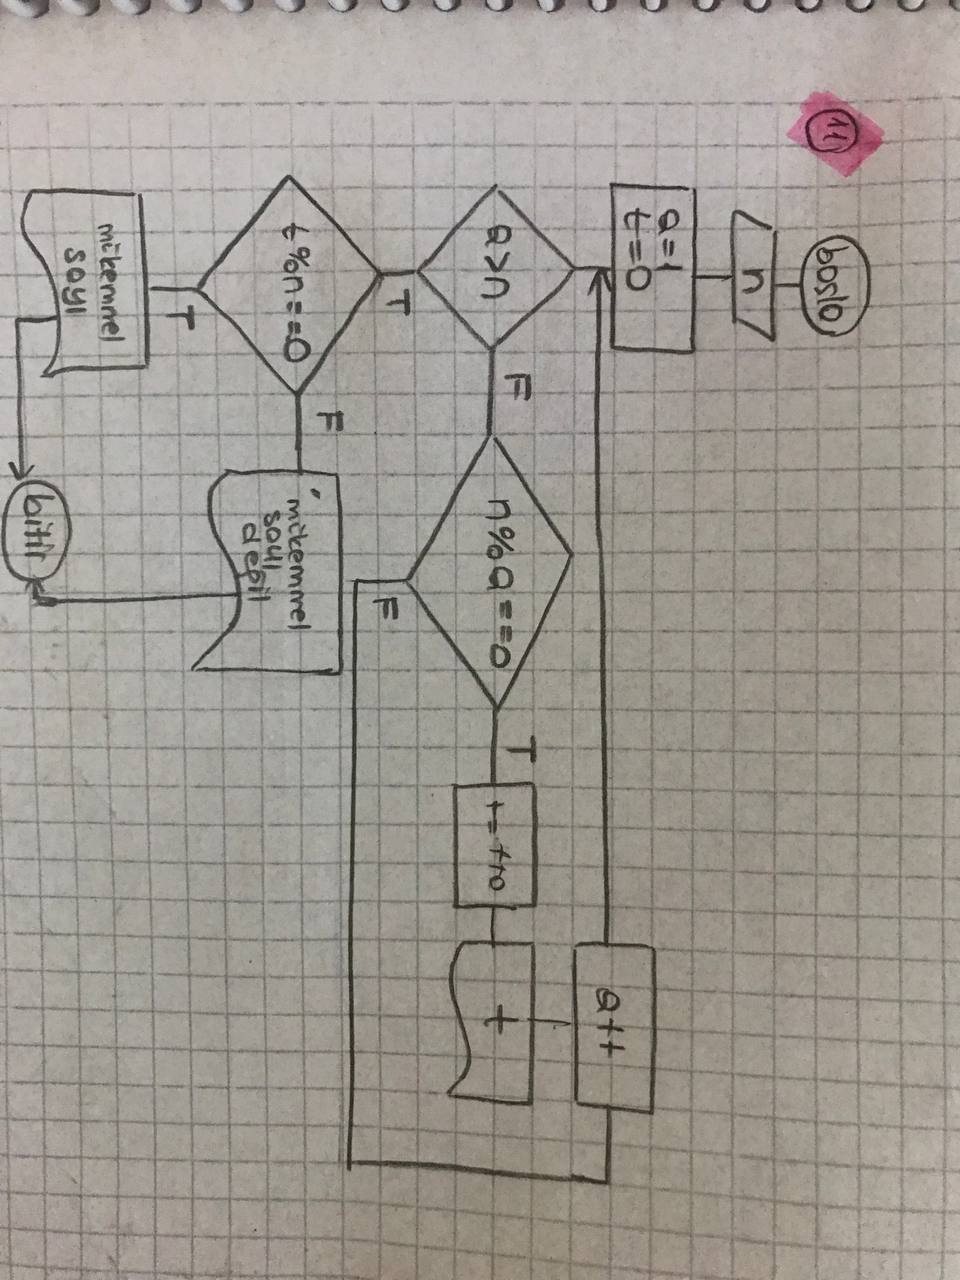 11
başla
n
a=1
t=0
a++
a>n
F
n%a==0
T
t=t+a
t
T
F
t%n==0
F
mükemmel
sayı
değil
T
mükemmel
sayı
bitir